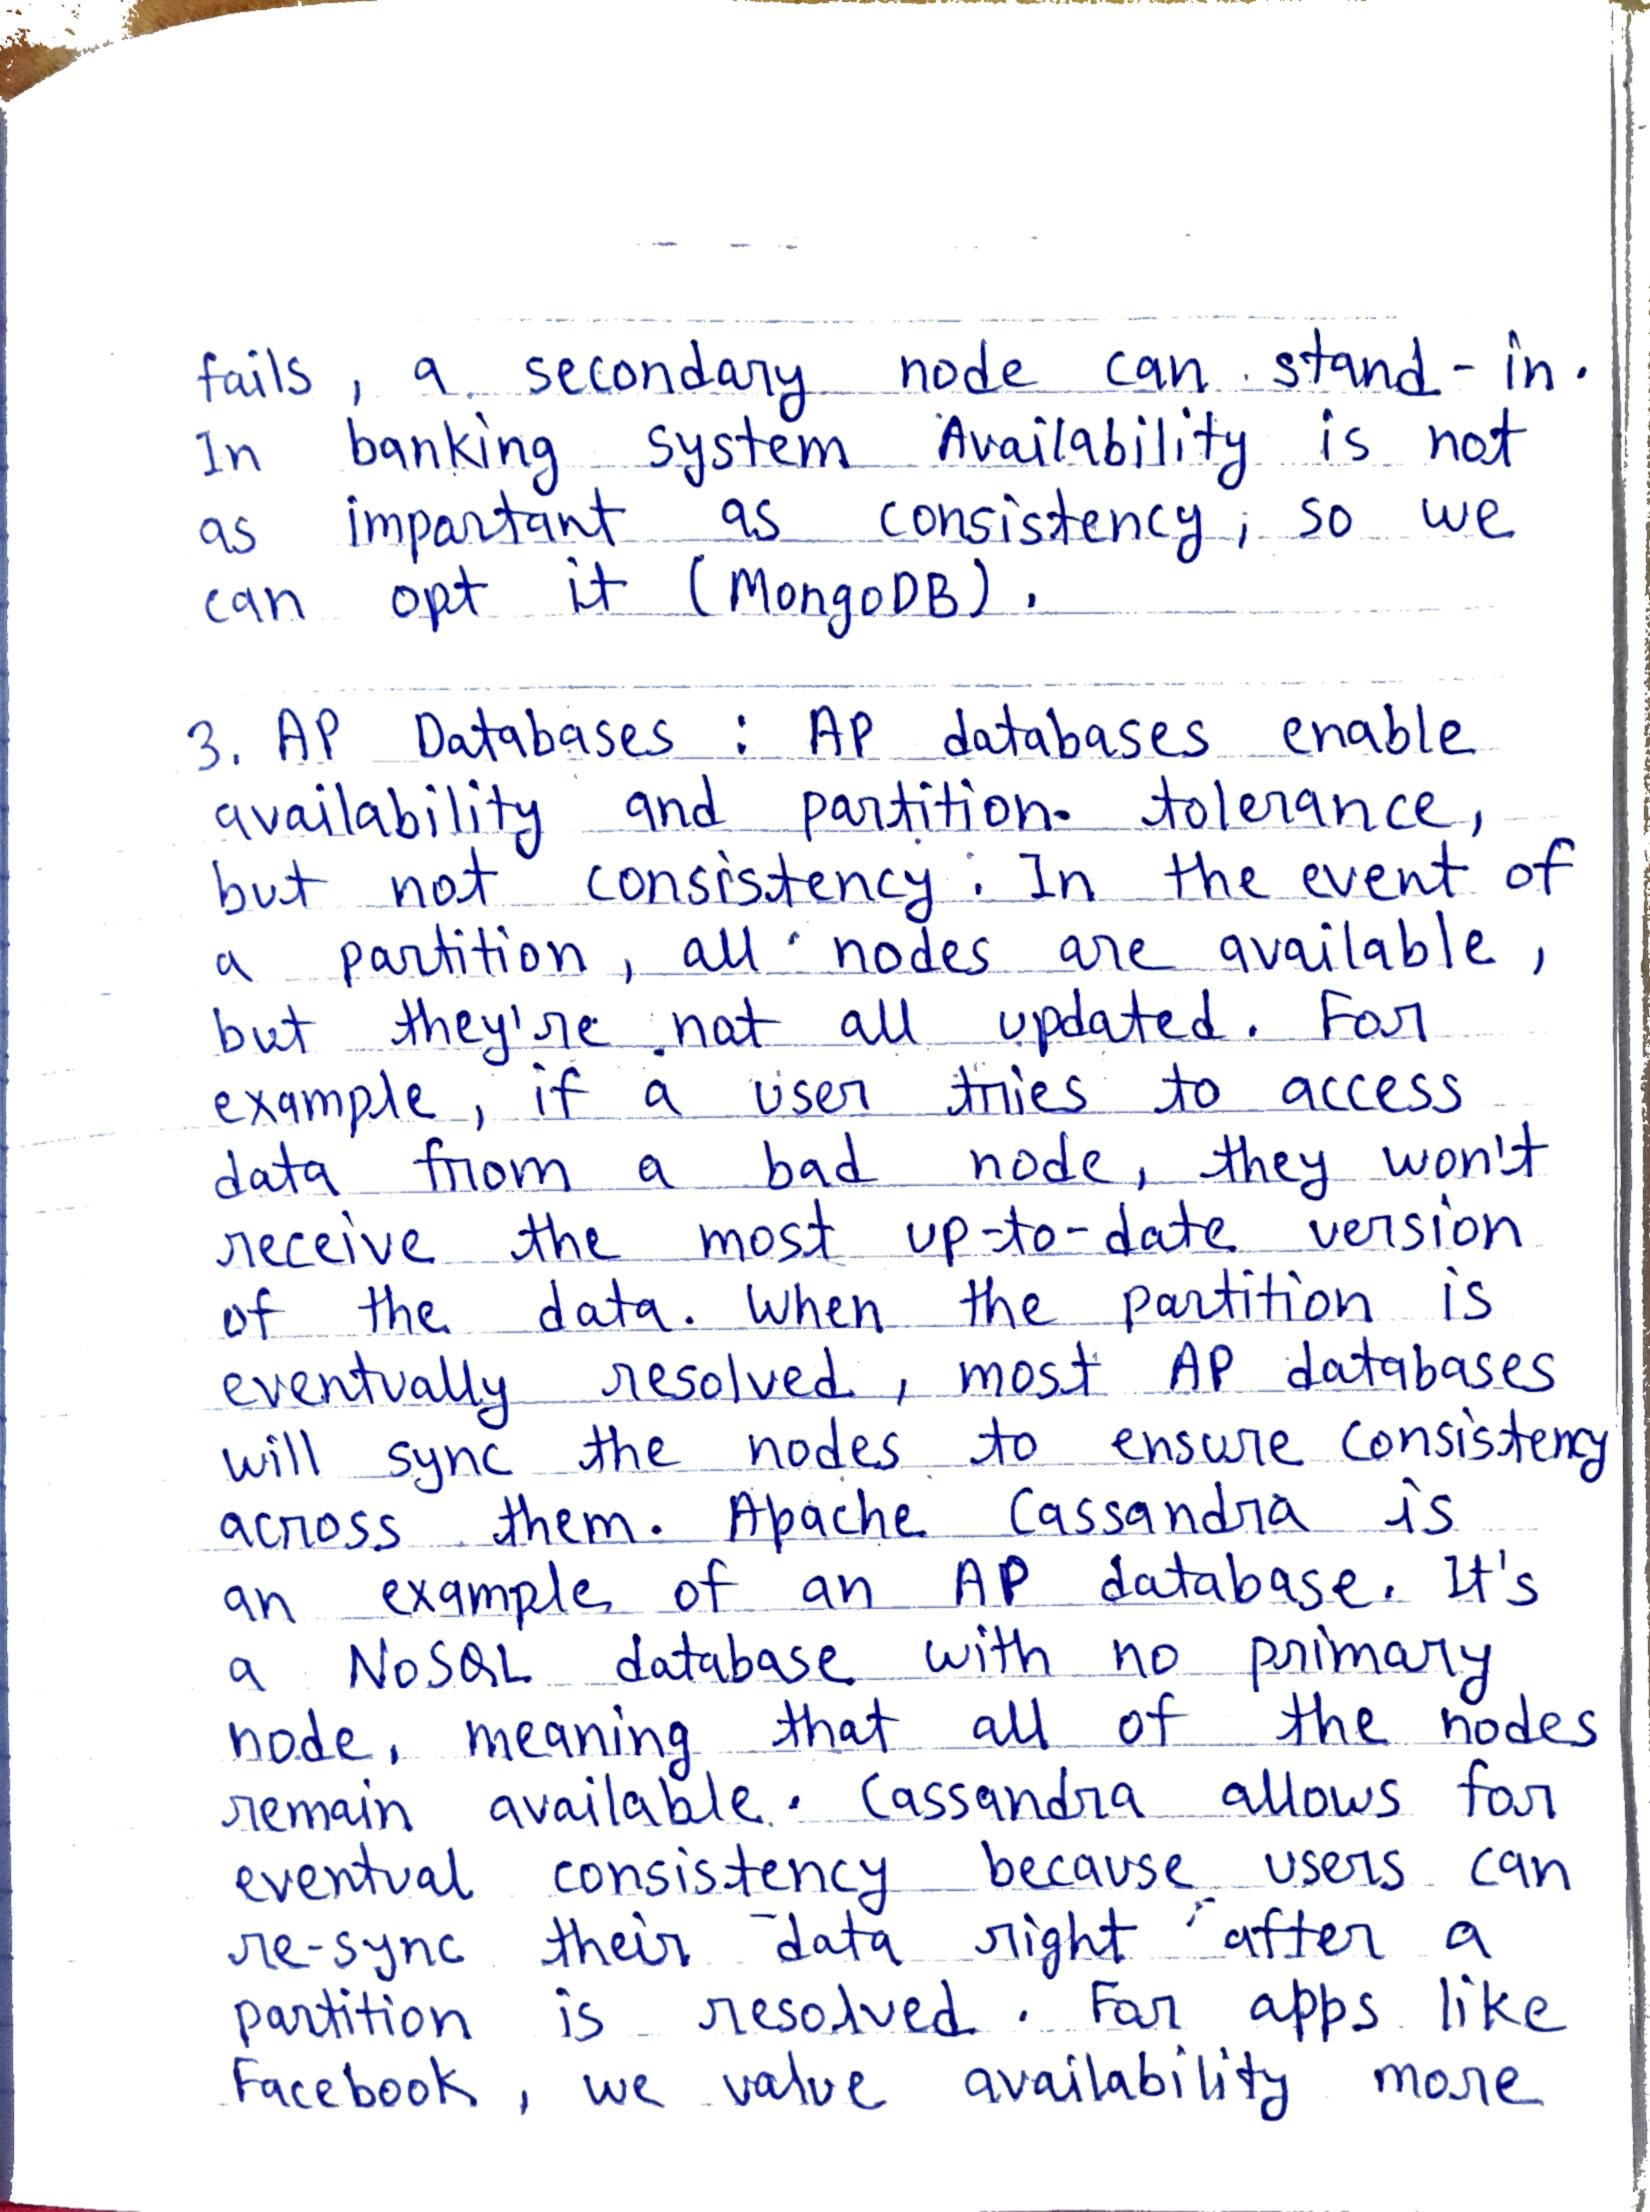 fails, a secondary node can stand-in.
In banking system Availability is not
as important as consistency, so we
can opt it (MongoDB).
3. AP Databases : AP databases enable
availability and partition tolerance,
but not consistency. In the event of
a partition, all nodes are available,
but they're not all updated. For
example, if a user tries to access
data from a bad node, they won't
receive the most up-to-date version
of the data. When the partition is
eventually resolved, most AP databases
will sync the nodes to ensure consistency
across them. Apache Cassandra is
an example of an AP database. It's
a NoSQL database with no primary
node, meaning that all of the nodes
remain available. Cassandra allows for
eventual consistency because users can
re-sync their data right after a
partition is resolved. For apps like
Facebook, we value availability more